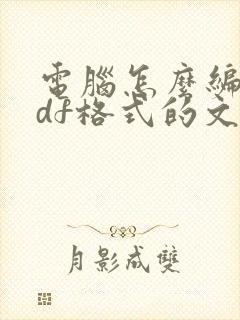 電腦怎麼編
df格式的文
月影成雙